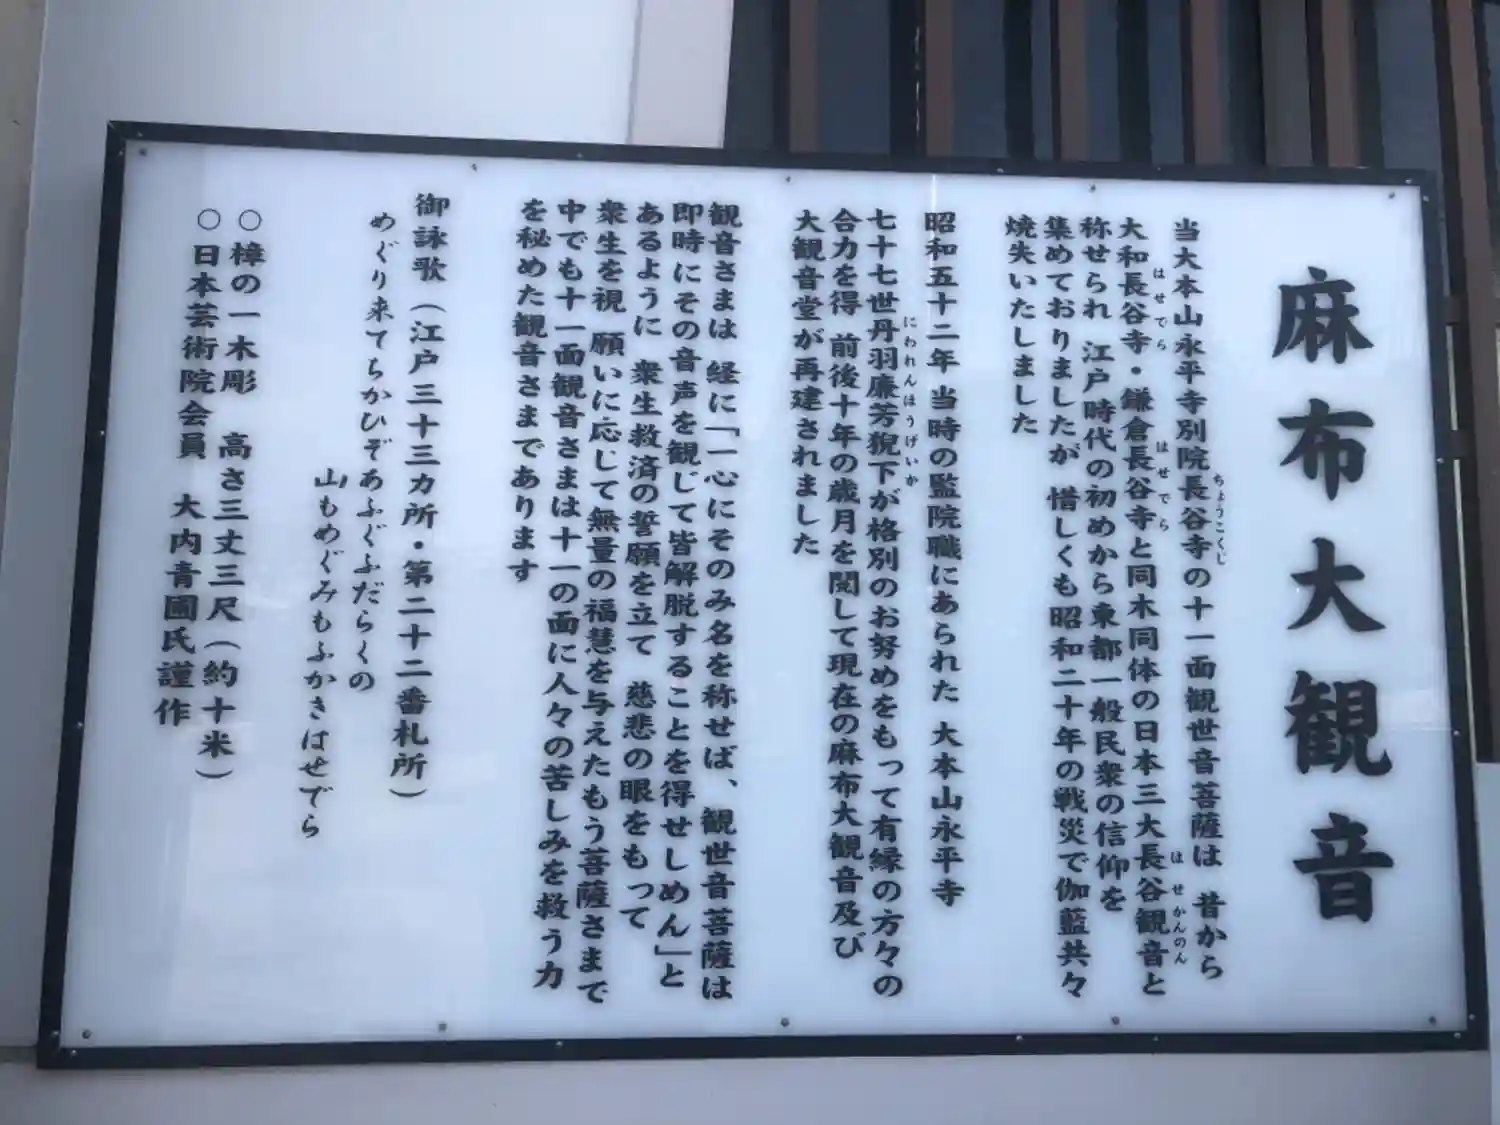 麻布大観音
当大本山永平寺別院長谷寺の十一面観世音菩薩は 昔から
大和長谷寺・鎌倉長谷寺と同木同体の日本三大長谷観音と
称せられ 江戸時代の初めから東都一般民衆の信仰を
集めておりましたが 惜しくも昭和二十年の戦災で伽藍共々
焼失いたしました
昭和五十二年 当時の監院職にあられた 大本山永平寺
七十七世丹羽廉芳猊下が格別のお努めをもって有縁の方々の
合力を得 前後十年の歳月を閲して現在の麻布大観音及び
大観音堂が再建されました
観音さまは 経に「一心にそのみ名を称せば、観世音菩薩は
即時にその音声を観じて皆解脱することを得せしめん」と
あるように 衆生救済の誓願を立て 慈悲の眼をもって
衆生を視 願いに応じて無量の福慧を与えたもう菩薩さまで
中でも十一面観音さまは十一の面に人々の苦しみを救う力
を秘めた観音さまであります
御詠歌（江戸三十三カ所・第二十二番札所）
めぐり来てちかひぞあふぐふだらくの
山もめぐみもふかきはせでら
○樟の一木彫 高さ三丈三尺（約十米）
○日本芸術院会員 大内青圃氏謹作
ちょうこくじ
はせでら
はせでら
はせかんのん
にわれんぽうげいか